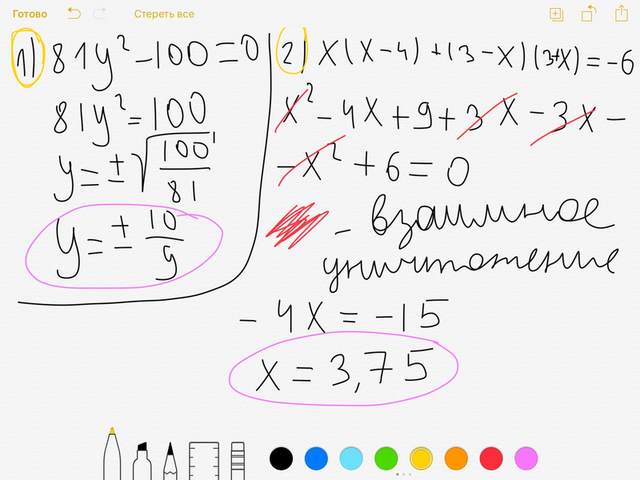 Готово Стереть все
1) 81y² - 100 = 0
81y² = 100
y = ±√100/81
y = ± 10/9
2) x(x-4) + (3-x)(3+x) = -6
x² - 4x + 9 + 3x - 3x -
- x² + 6 = 0
- взаимное
уничтожение
- 4x = -15
x = 3,75